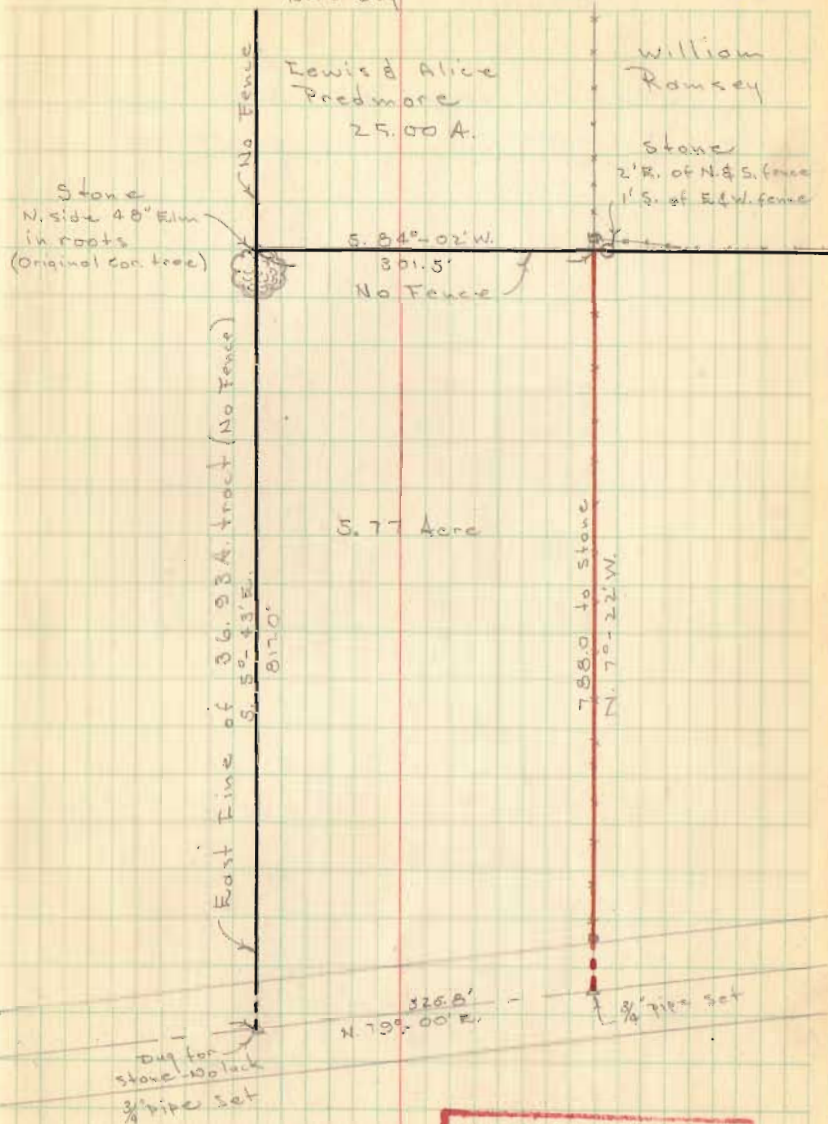 No Fence
Lewis & Alice
Predmore
25.00 A.
William
Ramsey
Stone
2' E. of N. & S. fence
1' S. of E & W. fence
Stone
N. side 48" Elm
in roots
(Original cor. tree)
S. 84°-02' W.
301.5'
No Fence
East Line of 36.93 A. tract (No Fence)
S. 5°-43' E.
812.0'
5.77 Acre
788.0 to Stone
N. 7°-22' W.
326.8'
N. 79°-00' E.
3/4" pipe set
Dug for
stone - No luck
3/4" pipe set